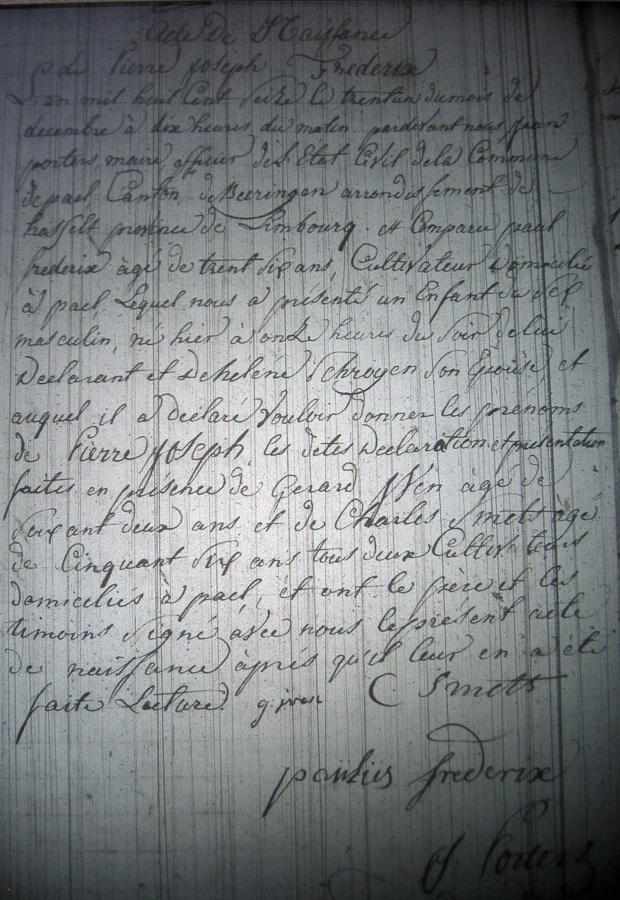 Acte de Naissance
de Pierre joseph Frederix
L'an mil huit Cent Seize le trentun du mois de
decembre à dix heures du matin pardevant nous jean
porters maire officier de l'Etat Civil de la Commune
de pael, Canton de Beeringen arrondissement de
hasselt province de Limbourg. est Comparu paul
frederix àgé de trent Six ans, Cultivateur Domicilié
à pael, Lequel nous a présenté un Enfant du Sex
masculin, né hier à onze heures du Soir de lui
Declarant et de hélene Schroyen Son Epouse, et
auquel il a déclaré Vouloir donner les prénoms
de Pierre joseph, les dites Declaration et presentation
faites en présence de Gerard àgé de
Soixant deux ans et de Charles Smets àgé
de Cinquant Six ans tous deux Cultivateurs
domiciliés à pael, et ont le père et les
timoins Signé avec nous le présent acte
de naissance àprés qu'il leur en a été
faite Lecture C Smets
paulus frederix
J. Porters